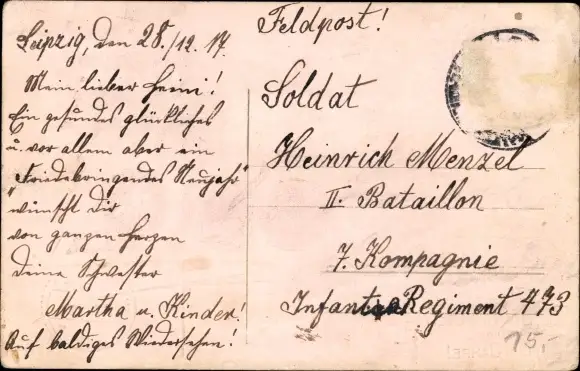 Leipzig, den 28./12. 17.
Mein lieber Heini!
Ein gesundes glückliches
u. vor allem aber ein
"Friedebringendes Neujahr"
wünscht Dir
von ganzen Herzen
Deine Schwester
Martha u. Kinder!
Auf baldiges Wiedersehen!
Feldpost!
Soldat
Heinrich Menzel
II. Bataillon
7. Kompagnie
Infant. Regiment 473
15,-